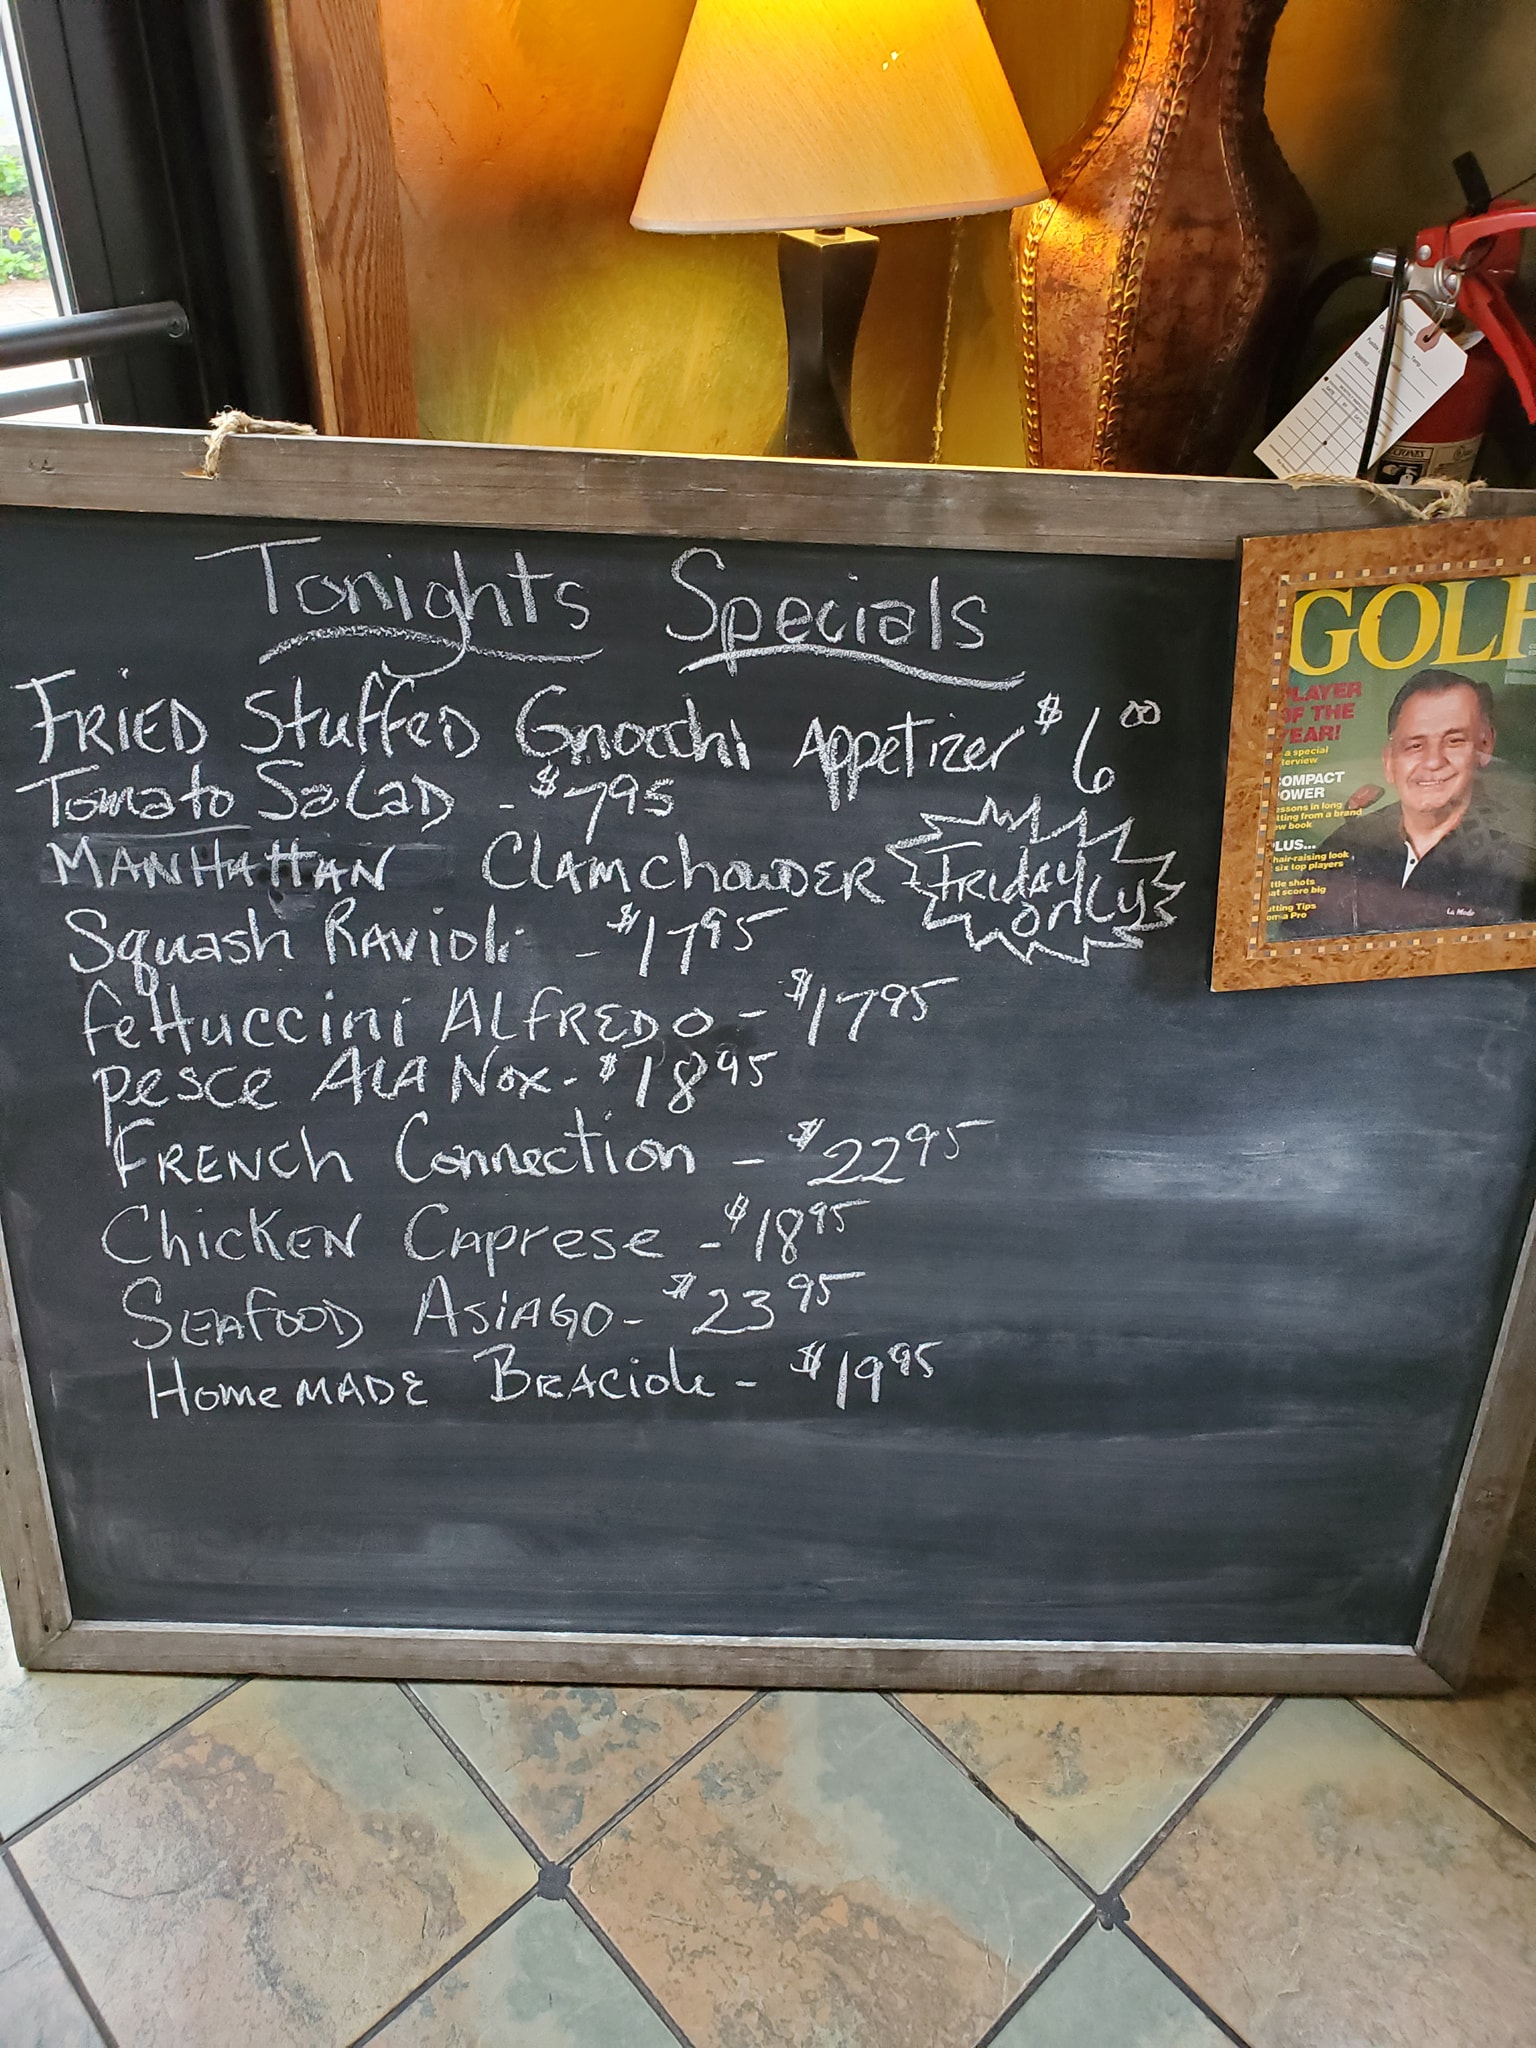 Tonights Specials
FRIED Stuffed Gnocchi Appetizer $6.00
Tomato Salad - $7.95
MANHATTAN Clam Chowder - FRIDAY ONLY
Squash Ravioli - $17.95
fettuccini ALFREDO - $17.95
pesce ALA Nox - $18.95
FRENCH Connection - $22.95
Chicken Caprese - $18.95
SEAfood ASIAGO - $23.95
Homemade BRACiole - $19.95
GOLF
PLAYER
OF THE
YEAR!
a special
COMPACT
POWER
in long
from a brand
book
PLUS...
hair-raising look
six top players
score big
Tips
a Pro
La Moda